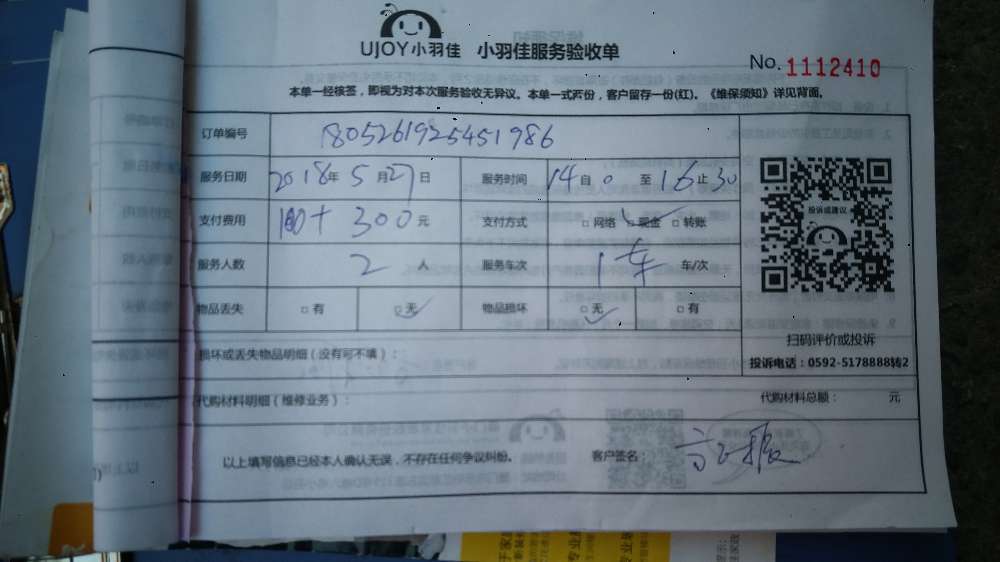 UJOY小羽佳 小羽佳服务验收单
No. 1112410
本单一经核签，即视为对本次服务验收无异议。本单一式两份，客户留存一份(红)。《维保须知》详见背面。
订单编号 1805261925451986
服务日期 2018年5月27日 服务时间 14自0至16止30
支付费用 100+300元 支付方式 □网络 ☑现金 □转账
投诉或建议
服务人数 2人 服务车次 1车 车/次
物品丢失 □有 ☑无 物品损坏 ☑无 □有
扫码评价或投诉
损坏或丢失物品明细（没有可不填）：
投诉电话：0592-5178888转2
代购材料明细（维修业务）： 代购材料总额： 元
以上填写信息已经本人确认无误，不存在任何争议纠纷。 客户签名：